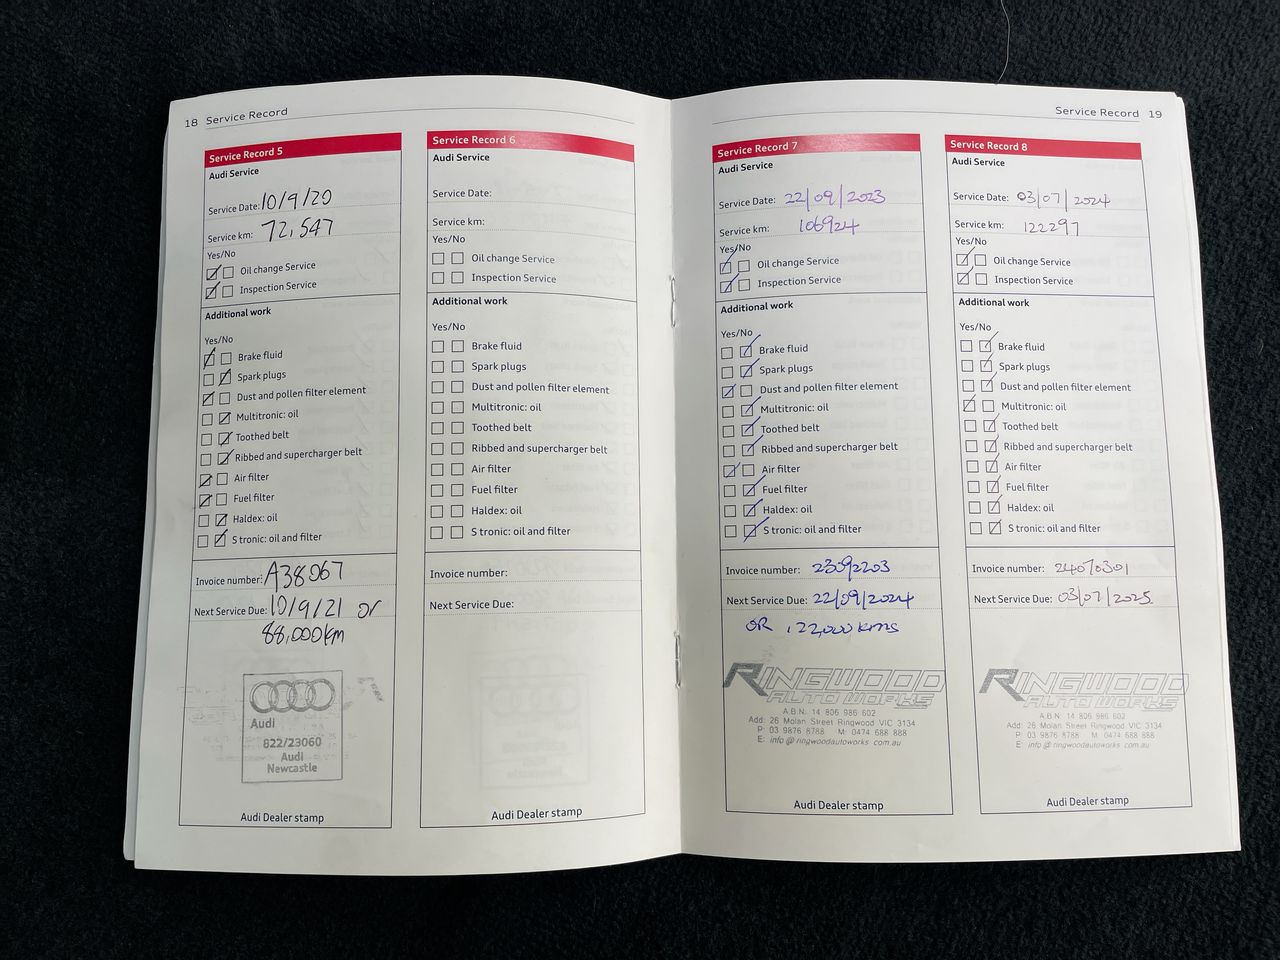 18 Service Record
Service Record 5
Audi Service
Service Date: 10/9/20
Service km: 72,547
Yes/No
Oil change Service
Inspection Service
Additional work
Yes/No
Brake fluid
Spark plugs
Dust and pollen filter element
Multitronic: oil
Toothed belt
Ribbed and supercharger belt
Air filter
Fuel filter
Haldex: oil
S tronic: oil and filter
Invoice number: A38067
Next Service Due: 10/9/21 or
88,000km
Audi
822/23060
Audi
Newcastle
Audi Dealer stamp
Service Record 6
Audi Service
Service Date:
Service km:
Yes/No
Oil change Service
Inspection Service
Additional work
Yes/No
Brake fluid
Spark plugs
Dust and pollen filter element
Multitronic: oil
Toothed belt
Ribbed and supercharger belt
Air filter
Fuel filter
Haldex: oil
S tronic: oil and filter
Invoice number:
Next Service Due:
Audi Dealer stamp
Service Record 19
Service Record 7
Audi Service
Service Date: 22/09/2023
Service km: 106924
Yes/No
Oil change Service
Inspection Service
Additional work
Yes/No
Brake fluid
Spark plugs
Dust and pollen filter element
Multitronic: oil
Toothed belt
Ribbed and supercharger belt
Air filter
Fuel filter
Haldex: oil
S tronic: oil and filter
Invoice number: 23092203
Next Service Due: 22/09/2024
OR 122,000 kms
RINGWOOD
AUTO WORKS
A.B.N: 14 806 986 602
Add: 26 Molan Street Ringwood VIC 3134
P: 03 9876 8788 M: 0474 688 888
E: info @ ringwoodautoworks com.au
Audi Dealer stamp
Service Record 8
Audi Service
Service Date: 03/07/2024
Service km: 122297
Yes/No
Oil change Service
Inspection Service
Additional work
Yes/No
Brake fluid
Spark plugs
Dust and pollen filter element
Multitronic: oil
Toothed belt
Ribbed and supercharger belt
Air filter
Fuel filter
Haldex: oil
S tronic: oil and filter
Invoice number: 24070301
Next Service Due: 03/07/2025
RINGWOOD
AUTO WORKS
A.B.N: 14 806 986 602
Add: 26 Molan Street Ringwood VIC 3134
P: 03 9876 8788 M: 0474 688 888
E: info @ ringwoodautoworks com.au
Audi Dealer stamp